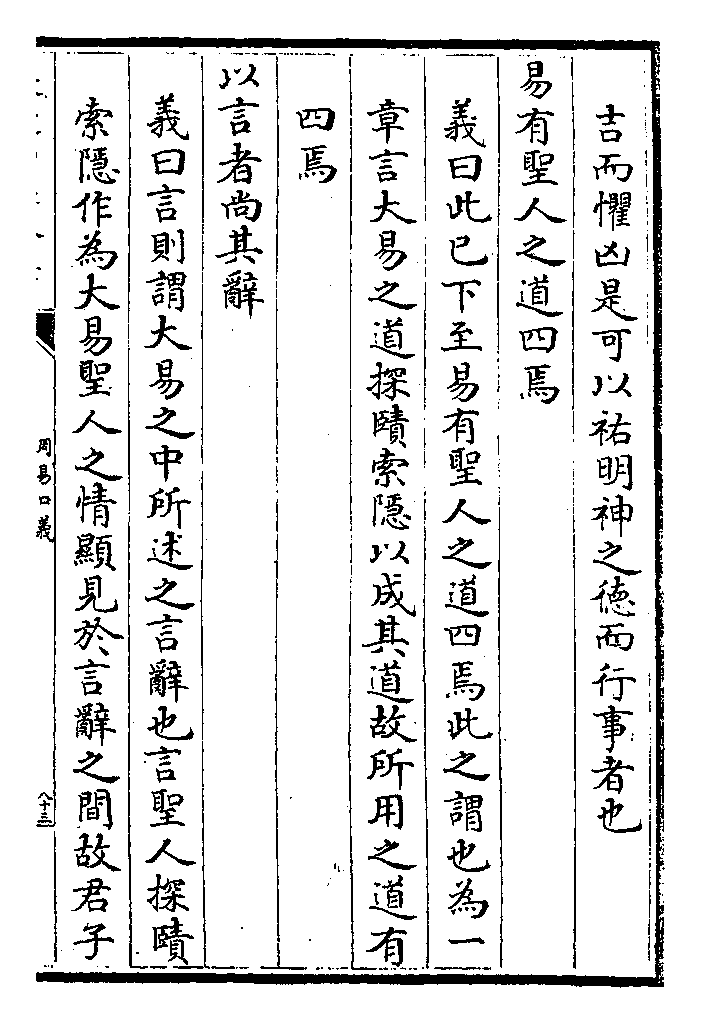 吉而懼凶是可以祐明神之德而行事者也
易有聖人之道四焉
義曰此已下至易有聖人之道四焉此之謂也為一
章言大易之道探賾索隱以成其道故所用之道有
四焉
以言者尚其辭
義曰言則謂大易之中所述之言辭也言聖人探賾
索隱作為大易聖人之情顯見於言辭之間故君子
周易口義
八十三